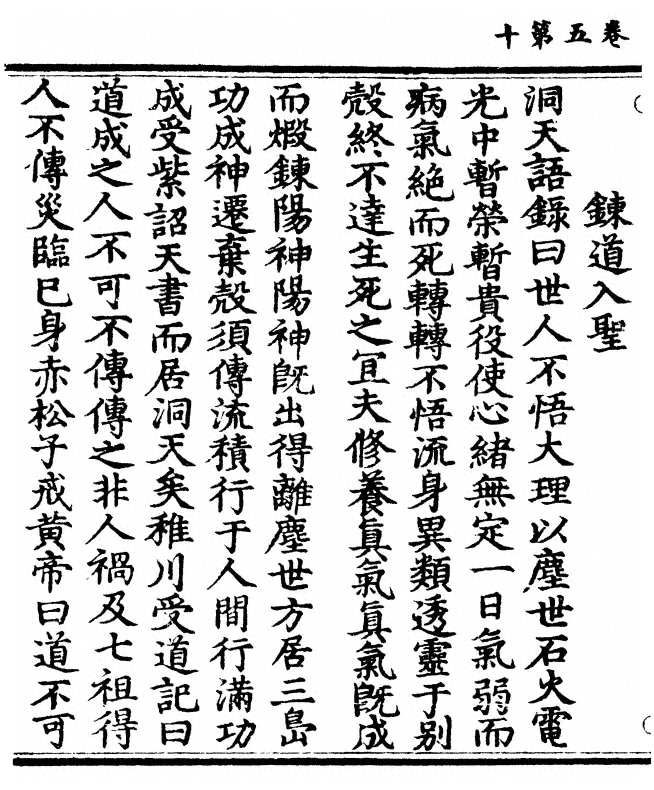 十第五卷
鍊道入聖
洞天語錄曰世人不悟大理以塵世石火電
光中暫榮暫貴役使心緒無定一日氣弱而
病氣絶而死轉轉不悟流身異類透靈于别
殻終不達生死之冝夫修養真氣真氣旣成
而煅鍊陽神陽神旣出得離塵世方居三島
功成神遷棄殻須傳流積行于人間行滿功
成受紫詔天書而居洞天矣稚川受道記曰
道成之人不可不傳傳之非人禍及七祖得
人不傳災臨巳身赤松子戒黄帝曰道不可